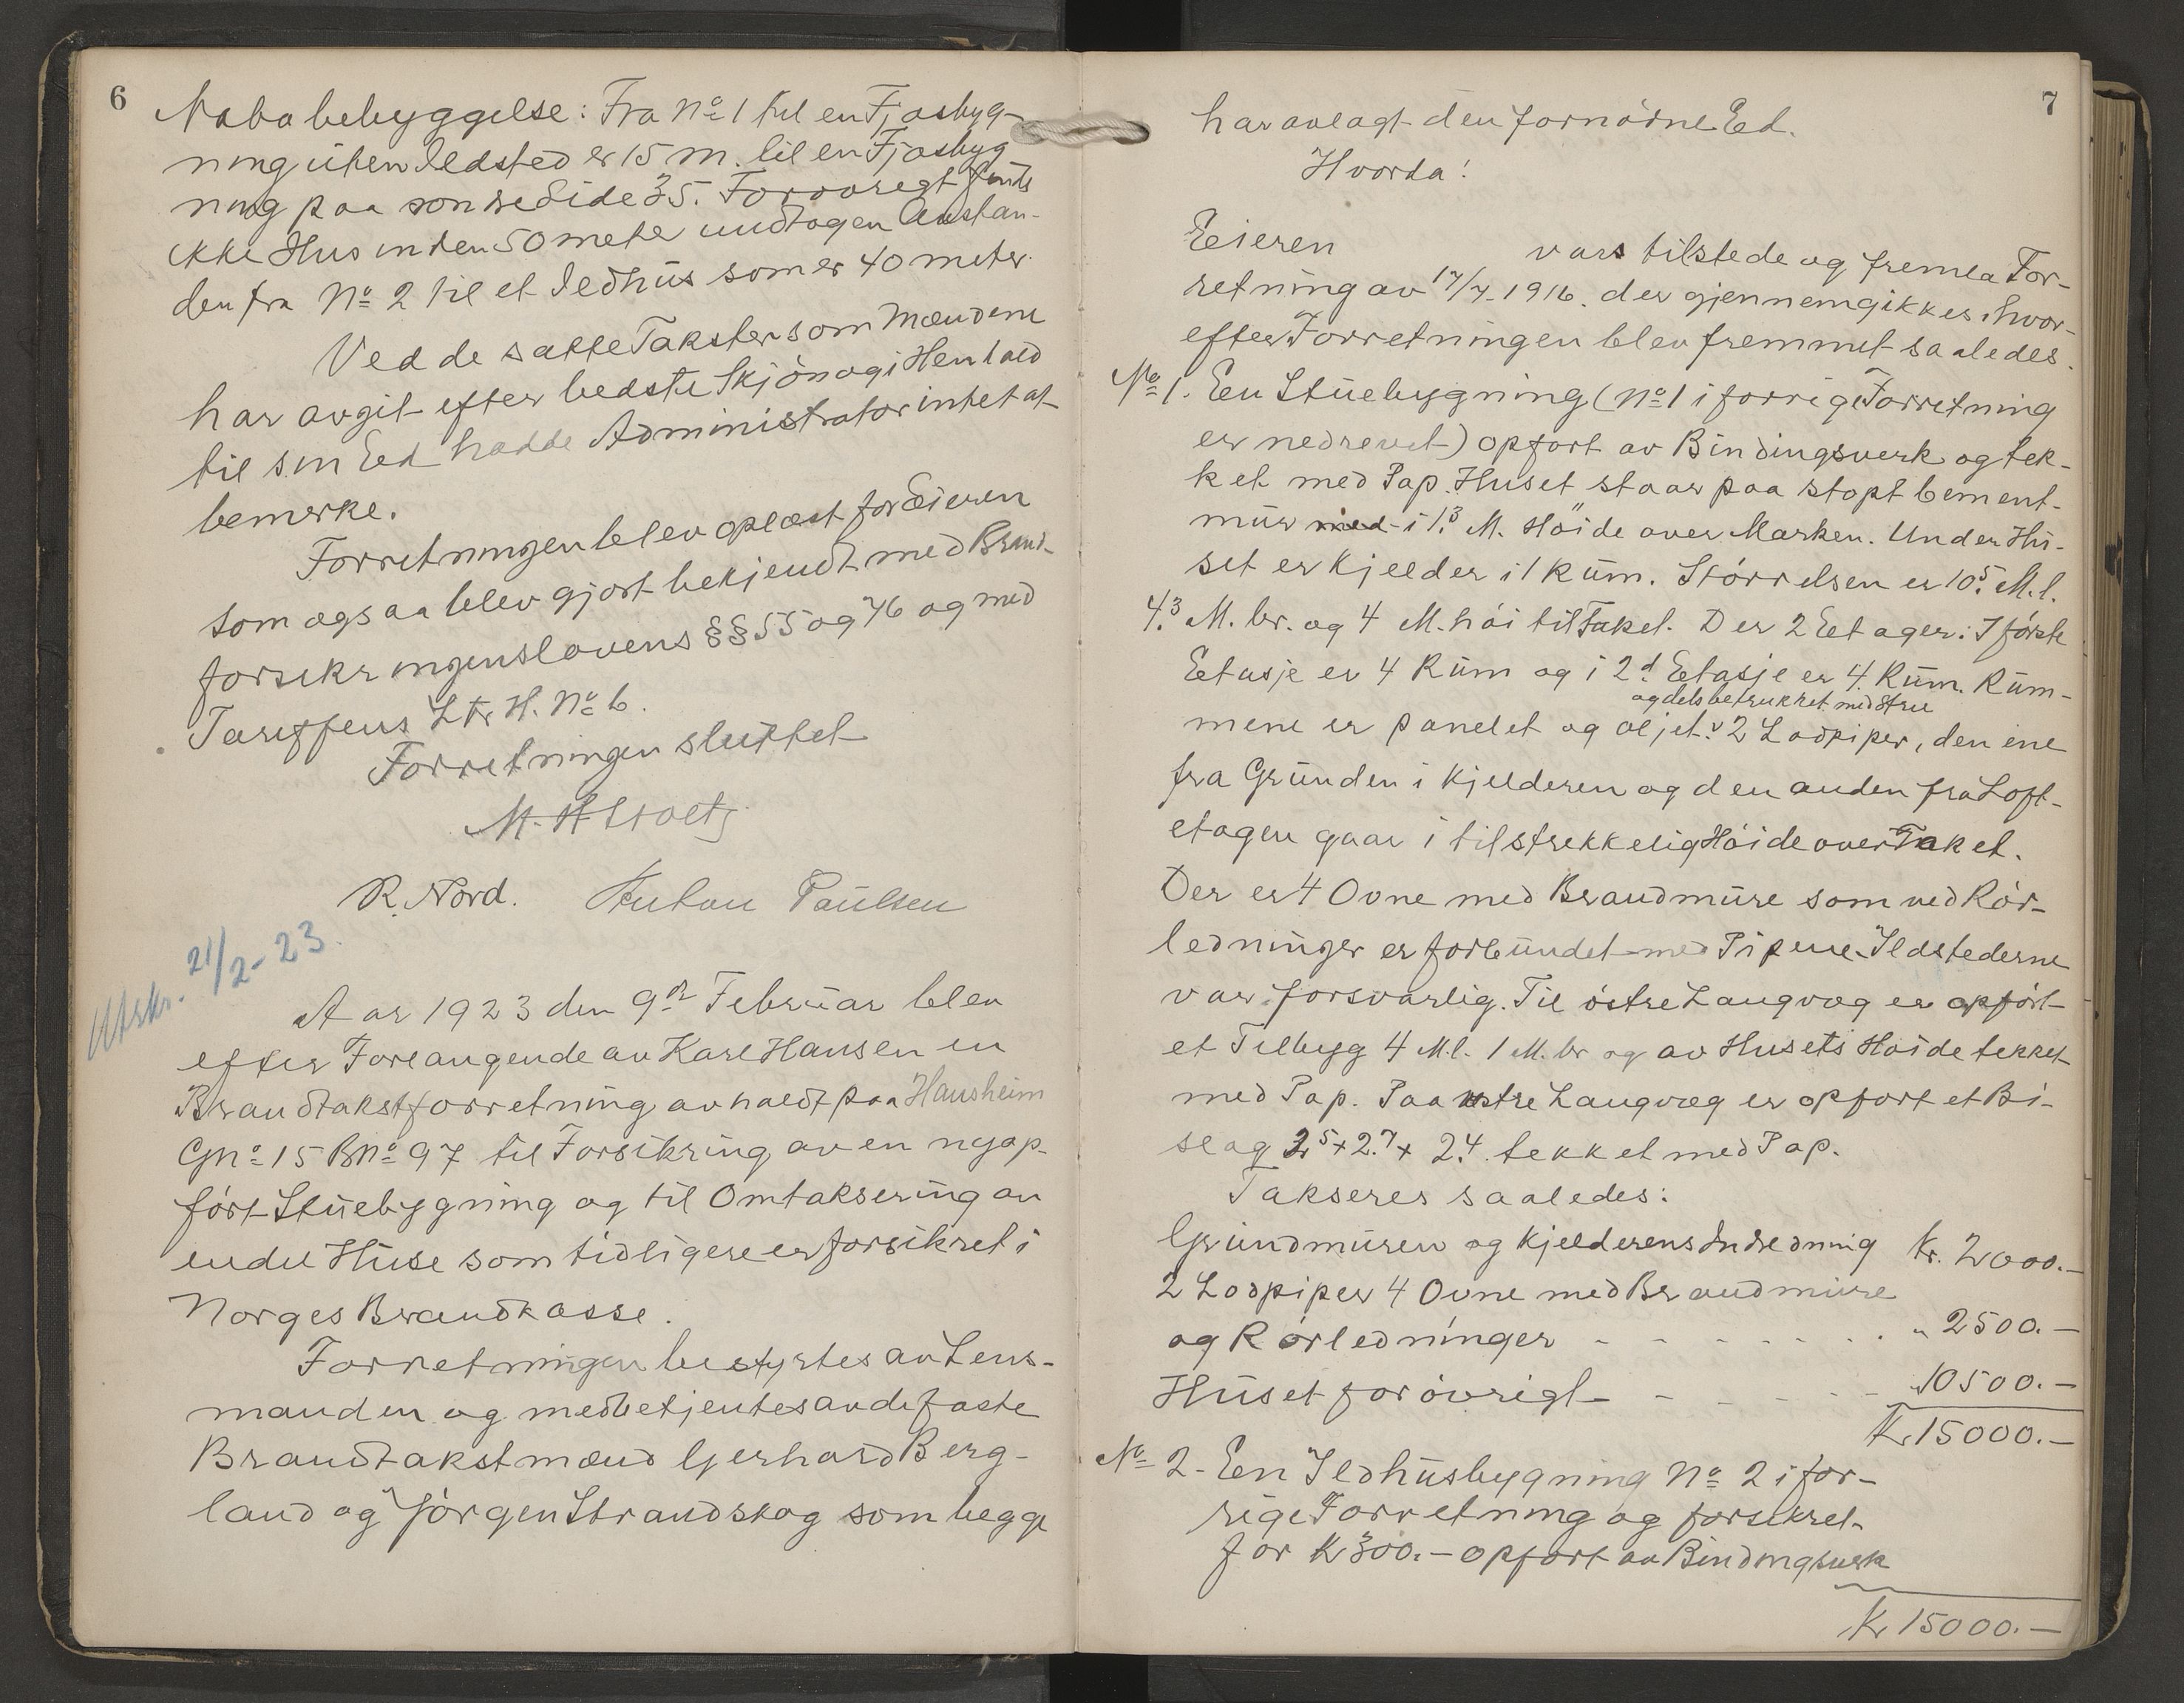 6
Nabobebyggelse: Fra No 1 til en Fjøsbyg-
ning uten Ildsted er 15 m. til en Fjøsbyg
ning paa søndre Side 35. Forøvrigt finds
ikke Hus inden 50 meter undtagen Avstan-
den fra No 2 til et Ildhus som er 40 meter
Ved de satte Takster som Mændene
har avgit efter bedste Skjøn og i Henhold
til sin Eed hadde Administrator intet at
bemerke.
Forretningen blev oplæst for Eieren
som ogsaa blev gjort bekjendt med Brand-
forsikringenslovens §§ 55 og 76 og med
Tariffens Ltr H. No 6.
Forretningen sluttet
M. A. Stoltz
R. Nord. Anton Paulsen
Utskr. 21/2-23.
Aar 1923 den 9de Februar blev
efter Forlangende av Karl Hansen en
Brandtakstforretning avholdt paa Hausheim
Gno 15 Bno 97 til Forsikring av en nyop-
ført Stuebygning og til Omtaksering av
endel Huse som tidligere er forsikret i
Norges Brandkasse.
Forretningen bestyrtes av Lens-
manden og medbetjentes av de faste
Brandtakstmænd Gerhard Berg-
land og Jørgen Strandskog som begge
7
har avlagt den fornødne Ed.
Hvorda!
Eieren var tilstede og fremla For-
retning av 17/7-1916. der gjennemgikkes, hvor-
efter Forretningen blev fremmet saaledes.
No 1. En Stuebygning (No 1 i forrige Forretning
er nedrevet) opført av Bindingsverk og tek-
ket med Pap. Huset staar paa støpt Cement-
mur med i 1.3 M. Høide over Marken. Under Hu-
set er Kjelder i 1 Rum. Størrelsen er 10.5 M. l.
4.3 M. br. og 4 M. høi til Taket. Der 2 Eetager: I første
Eetasje er 4 Rum og i 2d Eetasje er 4 Rum. Rum-
og dels betrukket med Strie
mene er panelet og oljet. v 2 Lodpiper, den ene
fra Grunden i Kjelderen og den anden fra Loft-
etagen gaar i tilstrekkelig Høide over Taket.
Der er 4 Ovne med Brandmure som ved Rør-
ledninger er forbundet med Piperne. Ildstederne
var forsvarlig. Til østre Langvæg er opført
et Tilbygg 4 M. l. 1 M. br og av Husets Høide tekket
med Pap. Paa vestre Langvæg er opført et Bi-
slag 2.5 x 2.7 x 2.4. tekket med Pap.
Takseres saaledes:
Grundmuren og Kjelderens Indredning Kr. 2000.-
2 Lodpiper 4 Ovne med Brandmure
og Rørledninger - - - - - - - " 2500.-
Huset forøvrigt - - - - - 10500.-
Kr. 15000.-
No 2. En Ildhusbygning No 2 i for-
rige Forretning og forsikret
for Kr 300.- opført av Bindingsverk
Kr 15000.-